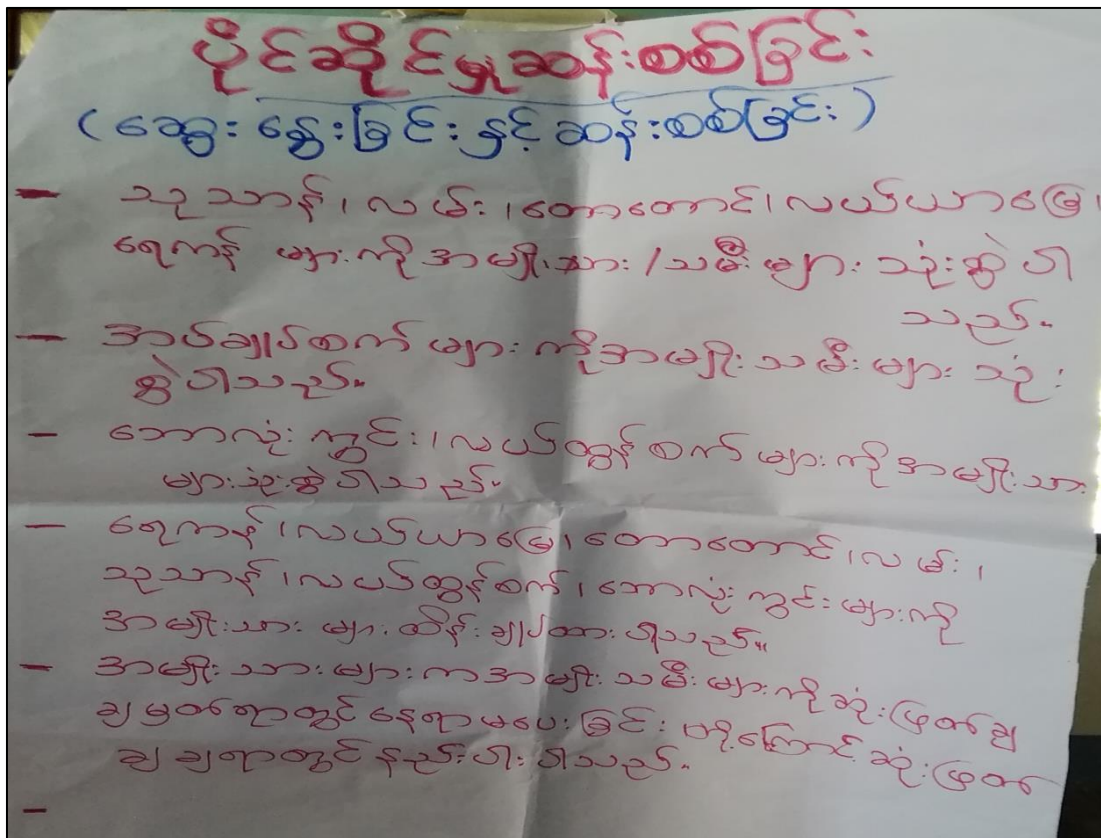 ပိုင်ဆိုင်မှုဆန်းစစ်ခြင်း
(ဆွေးနွေးခြင်းနှင့်ဆန်းစစ်ခြင်း)
- သုသာန်၊လမ်း၊တောတောင်၊လယ်ယာမြေ၊
ရေကန် များကို အမျိုးသား/သမီးများ သုံးစွဲပါ
သည်။
- အပ်ချုပ်စက် များ ကိုအမျိုးသမီးများ သုံး
စွဲပါသည်။
- ဘောလုံးကွင်း၊လယ်ထွန်စက် များကို အမျိုးသား
များသုံးစွဲပါသည်။
- ရေကန်၊လယ်ယာမြေ၊တောတောင်၊လမ်း၊
သုသာန်၊လယ်ထွန်စက်၊ဘောလုံးကွင်းများကို
အမျိုးသား များ ထိန်းချုပ်ထားပါသည်။
- အမျိုးသားများကအမျိုးသမီးများကိုဆုံးဖြတ်ချ
ချမှတ်ရာတွင် နေရာမပေးခြင်း တို့ကြောင့် ဆုံးဖြတ်
ချချရာတွင်နည်းပါးပါသည်။
-